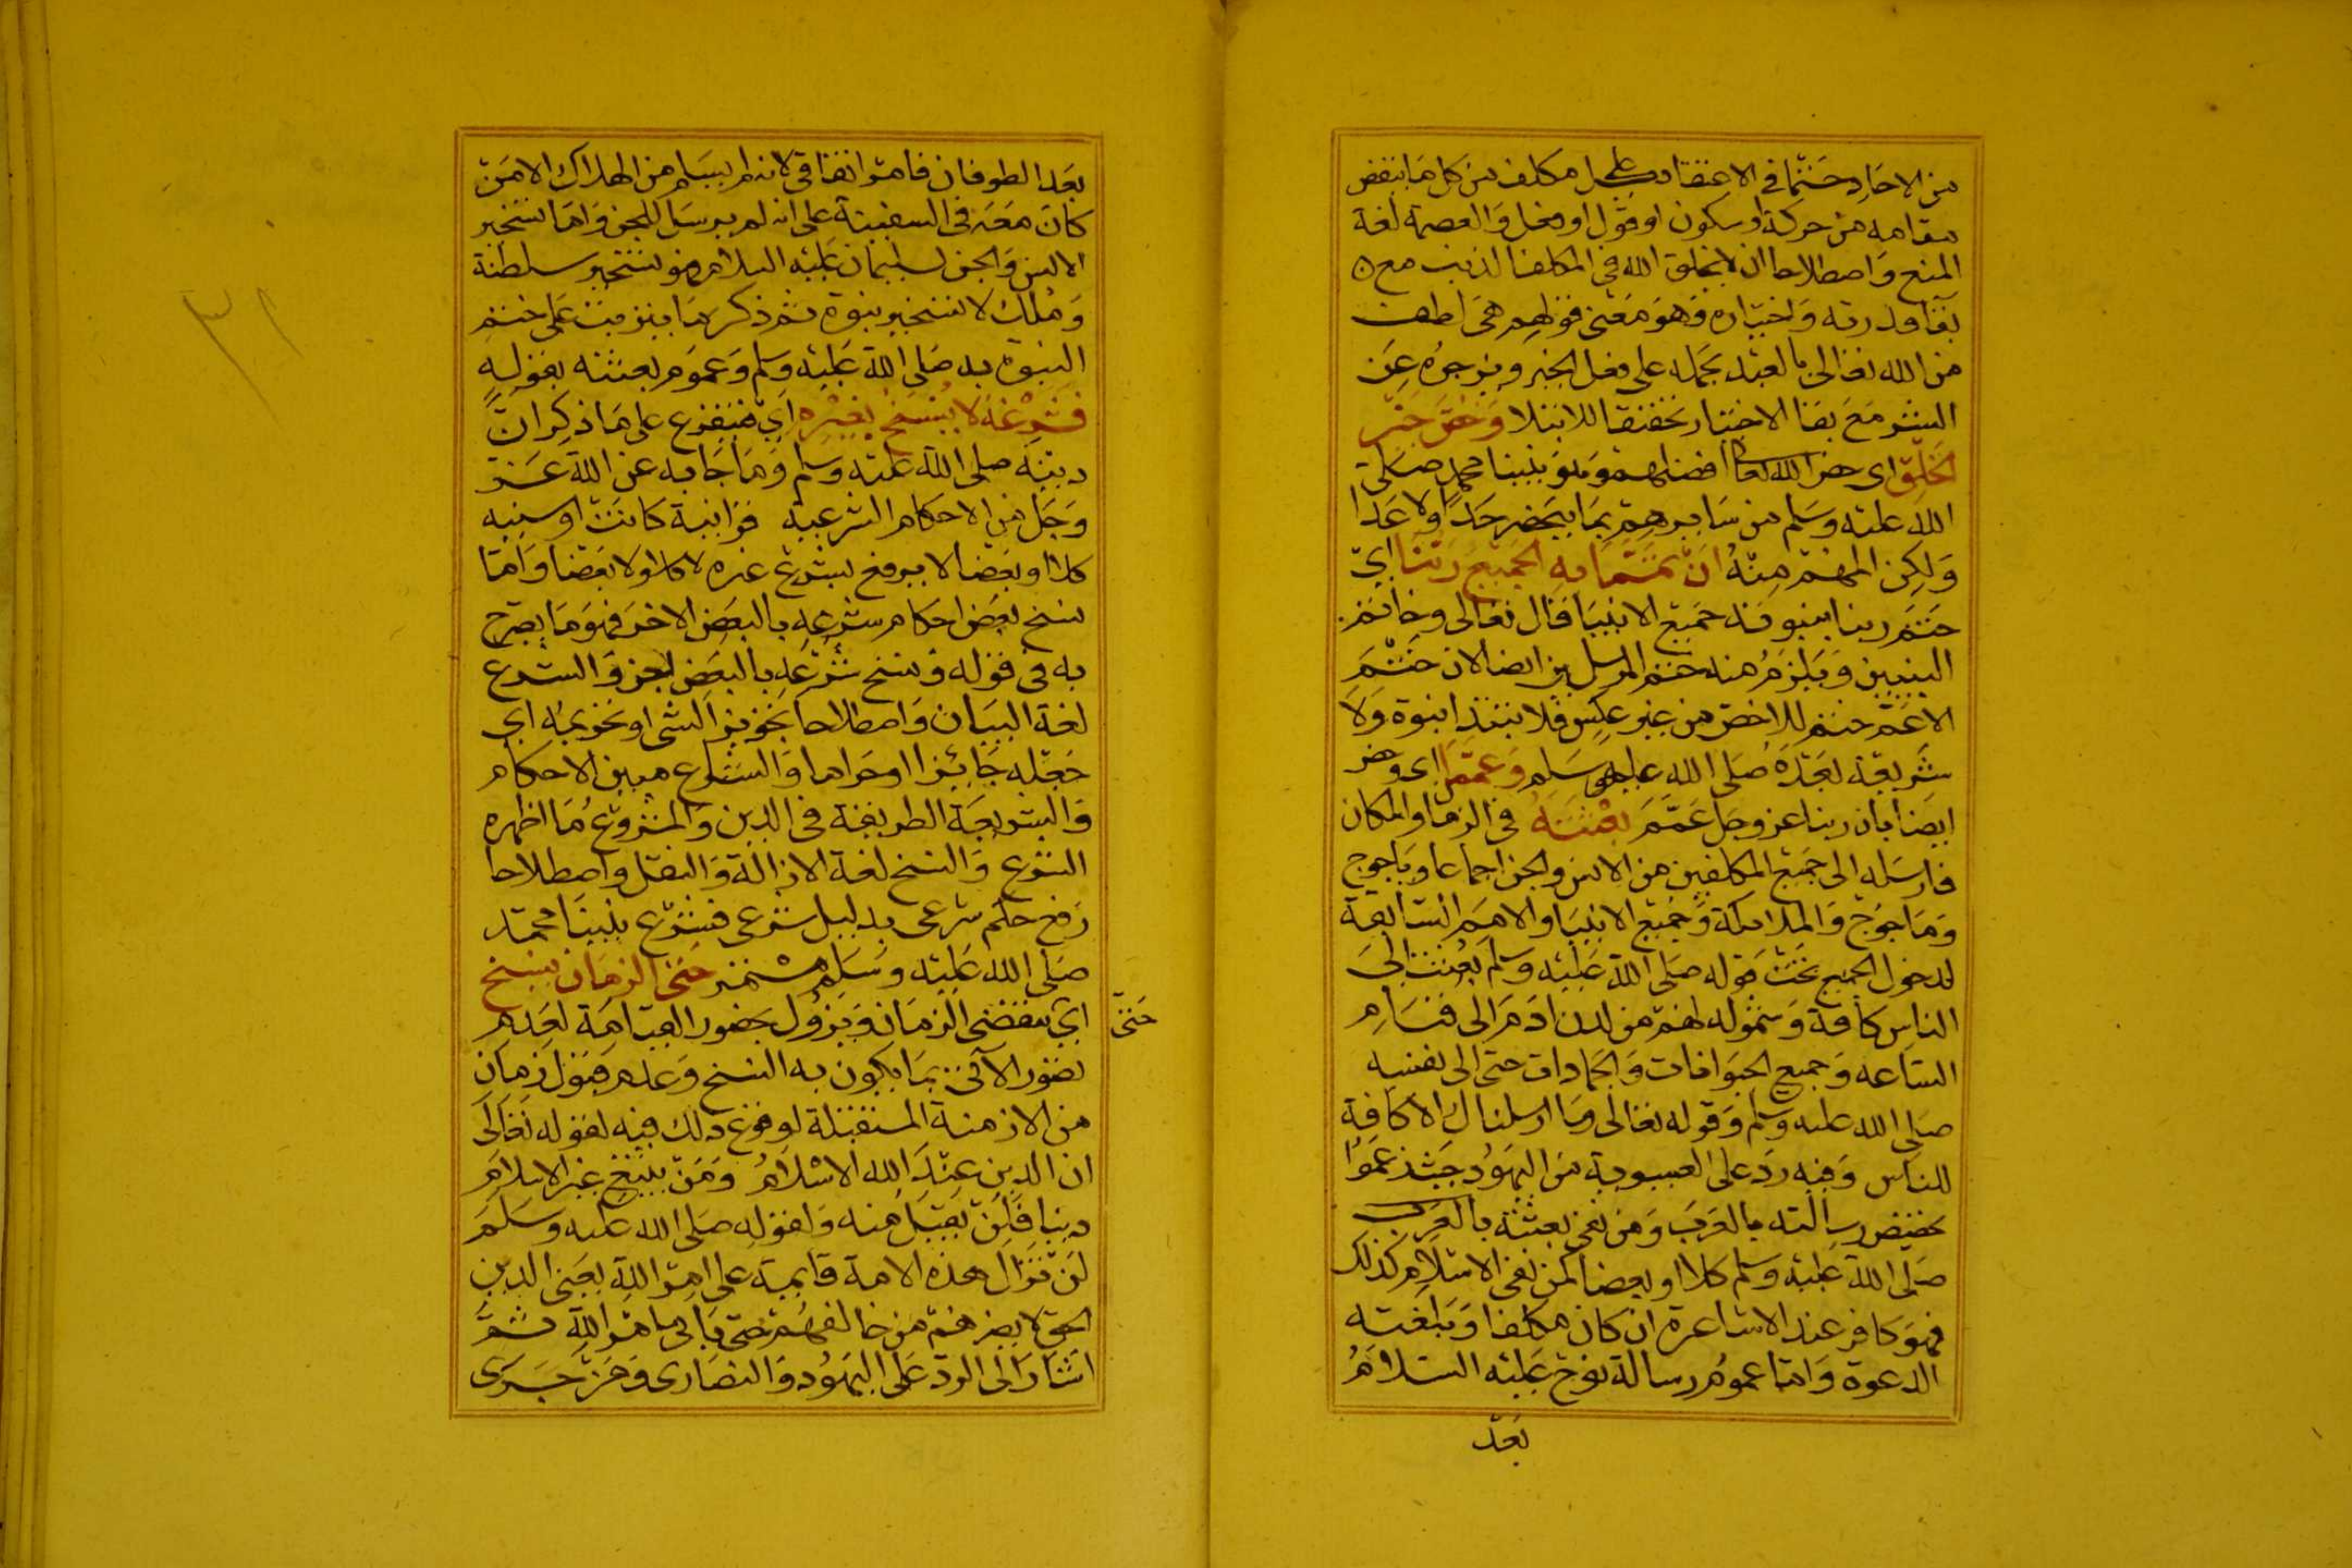 من الاحاد حتما في الاعتقاد على كل مكلف من كل ما ينقض
مقامه من حركة او سكون او قول او فعل والعصمة لغة
المنع واصطلاحا ان لا يخلق الله في المكلف الذنب مع
بقا قدرته واختياره وهو معنى قولهم هي لطف
من الله تعالى بالعبد يحمله على فعل الخير ويزجره عن
الشر مع بقا الاختيار تحقيقا للابتلا وخص خير
الخلق اى خص الله تعالى افضلهم وهو نبينا محمد صلى
الله عليه وسلم من سايرهم بما ينحصر حدا ولا عدا
ولكن المهم منه ان تمما به الجميع ربنا اي
ختم ربنا بنبوته جميع الانبيا قال تعالى وخاتم
النبيين ويلزم منه ختم المرسلين ايضا لان ختم
الاعم ختم للاخص من غير عكس فلا تبتدا نبوة ولا
شريعة بعده صلى الله عليه وسلم وعمما اى وخص
ايضا بان ربنا عز وجل عمم بعثته في الزمان والمكان
فارسله الى جميع المكلفين من الانس والجن اجماعا وياجوج
وماجوج والملائكة وجميع الانبيا والامم السابقة
لدخول الجميع تحت قوله صلى الله عليه وسلم بعثت الى
الناس كافة وشموله لهم من لدن ادم الى قيام
الساعه وجميع الحيوانات والجمادات حتى الى نفسه
صلى الله عليه وسلم وقوله تعالى وما ارسلناك الا كافة
للناس وفيه رد على العيسوية من اليهود حيث زعموا
تخصيص رسالته بالعرب ومن نفى بعثته بالعرب
صلى الله عليه وسلم كلا او بعضا كمن نفى الاسلام كذلك
فهو كافر عند الاشاعرة ان كان مكلفا وبلغته
الدعوة واما عموم رسالة نوح عليه السلام
بعد
بعد الطوفان فامر اتفاقى لانه لم يسلم من الهلاك الا من
كان معه في السفينة على انه لم يرسل للجن واما تسخير
الانس والجن لسليمان عليه السلام فهو تسخير سلطنة
وملك لا تسخير نبوة ثم ذكر ما يترتب على ختم
النبوة به صلى الله عليه وسلم وعموم بعثته بقوله
فشرعه لا ينسخ بغيره اي فيتفرع على ما ذكر ان
دينه صلى الله عليه وسلم وما جا به عن الله عز
وجل من الاحكام الشرعية قرانية كانت او سنيه
كلا او بعضا لا يرفع بشرع غيره لا كلا ولا بعضا واما
نسخ بعض احكام شرعه بالبعض الاخر فهو ما يصرح
به في قوله ونسخ شرعه بالبعض اجز والشرع
لغة البيان واصطلاحا تجويز الشى او تحريمه اي
جعله جائزا او حراما والشارع مبين الاحكام
والشريعة الطريقة في الدين والمشروع ما اظهره
الشرع والنسخ لغة الازالة والنقل واصطلاحا
رفع حكم شرعى بدليل شرعى فشرع نبينا محمد
صلى الله عليه وسلم مستمر حتى الزمان ينسخ
حتى
اي ينقضى الزمان ويزول بحضور القيامة لعدم
تصور الآتى بما يكون به النسخ وعدم قبول زمان
من الازمنة المستقبلة لوقوع ذلك فيه لقوله تعالى
ان الدين عند الله الاسلام ومن يبتغ غير الاسلام
دينا فلن يقبل منه ولقوله صلى الله عليه وسلم
لن تزال هذه الامة قايمة على امر الله يعنى الدين
الحق لا يضرهم من خالفهم حتى ياتى امر الله ثم
اشار الى الرد على اليهود والنصارى ومن جرى